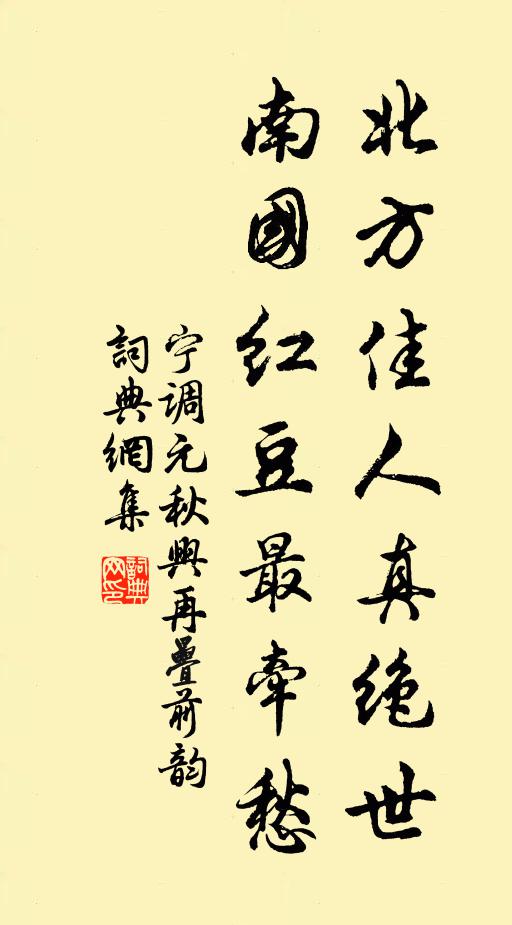 北方佳人真绝世
南國红豆最牵愁
宁调元秋興再疊前韵
詞典網集
詞典网印